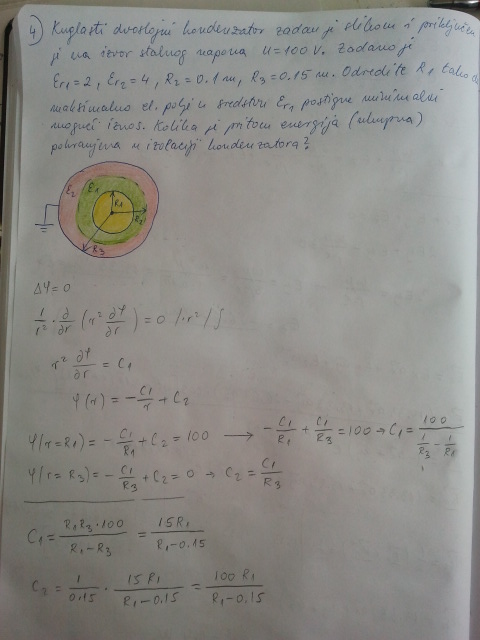 4) Kuglasti dvoslojni kondenzator zadan je slikom i priključen
je na izvor stalnog napona U=100 V. Zadano je
εr1=2, εr2=4, R2=0.1 m, R3=0.15 m. Odredite R1 tako da
maksimalno el. polje u sredstvu εr1 postigne minimalni
mogući iznos. Kolika je pritom energija (ukupna)
pohranjena u izolaciji kondenzatora?
ε2 ε1 R1 R2 R3
Δφ=0
1/r² · ∂/∂r (r² ∂φ/∂r) = 0 /·r² /∫
r² ∂φ/∂r = C1
φ(r) = -C1/r + C2
φ(r=R1) = -C1/R1 + C2 = 100 → -C1/R1 + C1/R3 = 100 → C1 = 100/(1/R3 - 1/R1)
φ(r=R3) = -C1/R3 + C2 = 0 → C2 = C1/R3
C1 = R1R3·100/(R1-R3) = 15R1/(R1-0.15)
C2 = 1/0.15 · 15R1/(R1-0.15) = 100R1/(R1-0.15)